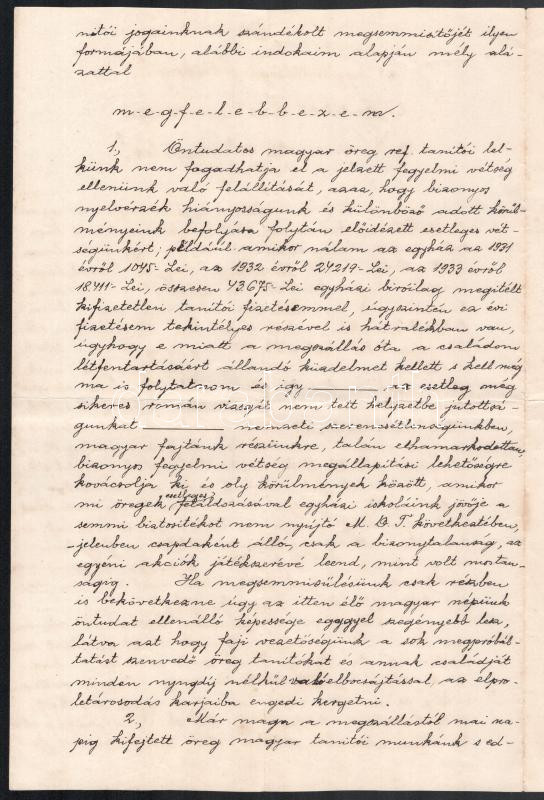 nitói jogainknak szándékolt megsemmisitőjét ilyen
formájában, alábbi indokaim alapján mély alá-
zattal
m-e-g-f-e-l-e-b-b-e-z-e-m.
1., Öntudatos magyar öreg ref. tanitói lel-
künk nem fogadhatja el a jelzett fegyelmi vétség
ellenünk való felállitását, azaz, hogy bizonyos
nyelvérzék hiányosságunk és különböző adott körül-
ményeink befolyása folytán előidézett esetleges vét-
ségünkért; például amikor nálam az egyház az 1931
évről 1045- Lei, az 1932 évről 24219- Lei, az 1933 évről
18411- Lei, összesen 43675- Lei egyházi biróilag megitélt
kifizetetlen tanitói fizetésemmel, úgyszintén ez évi
fizetésem tekintélyes részével is hátralékban van,
úgyhogy e miatt a megszállás óta a családom
létfentartásáért állandó küzdelmet kellett s kell még
ma is folytatnom és igy az esetleg még
sikeres román vizsgát nem tett helyzetbe jutottsá-
gunkat nemzeti szerencsétlenségünkben,
magyar fajtánk részünkre, talán elhamarkodottan,
bizonyos fegyelmi vétség megállapitási lehetőségre
kovácsolja ki, és oly körülmények között, amikor
mi öregek esetleges feláldozásával egyházi iskoláink jövője a
semmi biztositékot nem nyújtó M. O. T. következtében,
-jelenben csapdaként álló, csak a bizonytalanság, az
egyéni akciók játékszerévé leend, mint volt mostan-
ságig. Ha megsemmisülésünk csak részben
is bekövetkezne úgy az itten élő magyar népünk
öntudat ellenálló képessége egggyel szegényebb lesz,
látva azt hogy faji vezetőségünk a sok megpróbál-
tatást szenvedő öreg tanitókat és annak családját
minden nyugdij nélkül való elbocsájtással, az elpro-
letárosodás karjaiba engedi kergetni.
2., Már maga a megszállástól mai na-
pig kifejtett öreg magyar tanitói munkánk s ed-